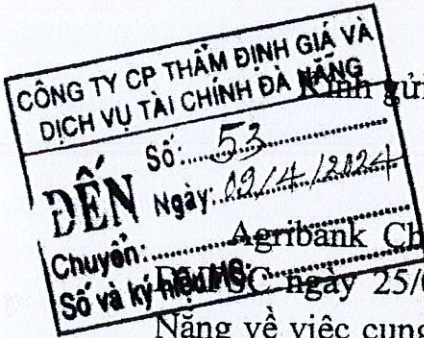 CÔNG TY CP THẨM ĐỊNH GIÁ VÀ
DỊCH VỤ TÀI CHÍNH ĐÀ NẴNG
Kính gửi
ĐẾN
Số: 53
Ngày: 09/4/2024
Chuyển:
Số và ký hiệu HS:
Agribank Ch
SC ngày 25/0
Nẵng về việc cung